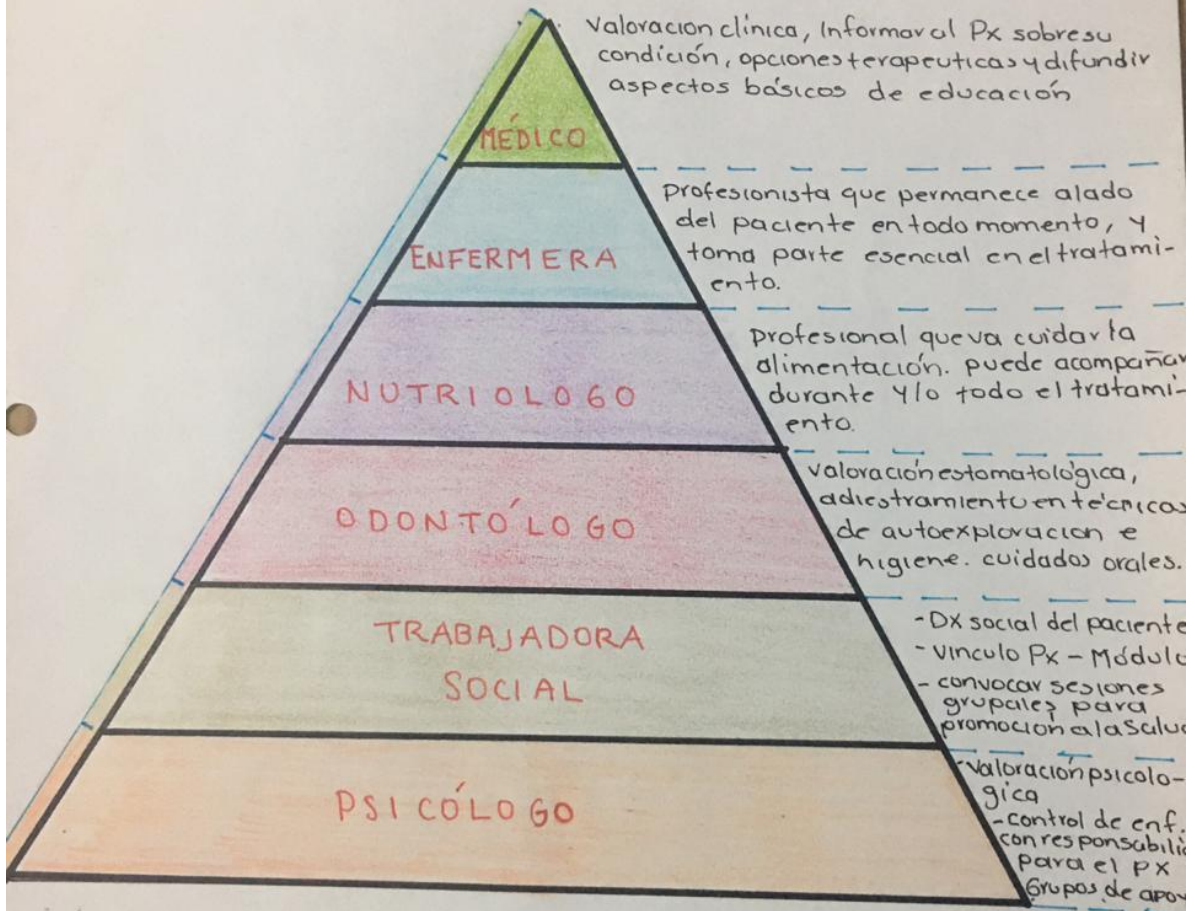 Valoracion clínica, Informar al Px sobre su
condición, opciones terapeuticas y difundir
aspectos básicos de educación
MÉDICO
profesionista que permanece alado
del paciente en todo momento, y
toma parte esencial en el tratami-
ento.
ENFERMERA
profesional que va cuidar la
alimentación. puede acompañar
durante y/o todo el tratami-
ento.
NUTRIOLOGO
valoración estomatológica,
adiestramiento en técnicas
de autoexploración e
higiene. cuidados orales.
ODONTÓLOGO
- DX social del paciente
- vinculo Px - Módulo
- convocar sesiones
grupales para
promoción a la Salud
TRABAJADORA
SOCIAL
- Valoración psicolo-
gica
- control de enf.
con
para el px
Grupos de
PSICÓLOGO